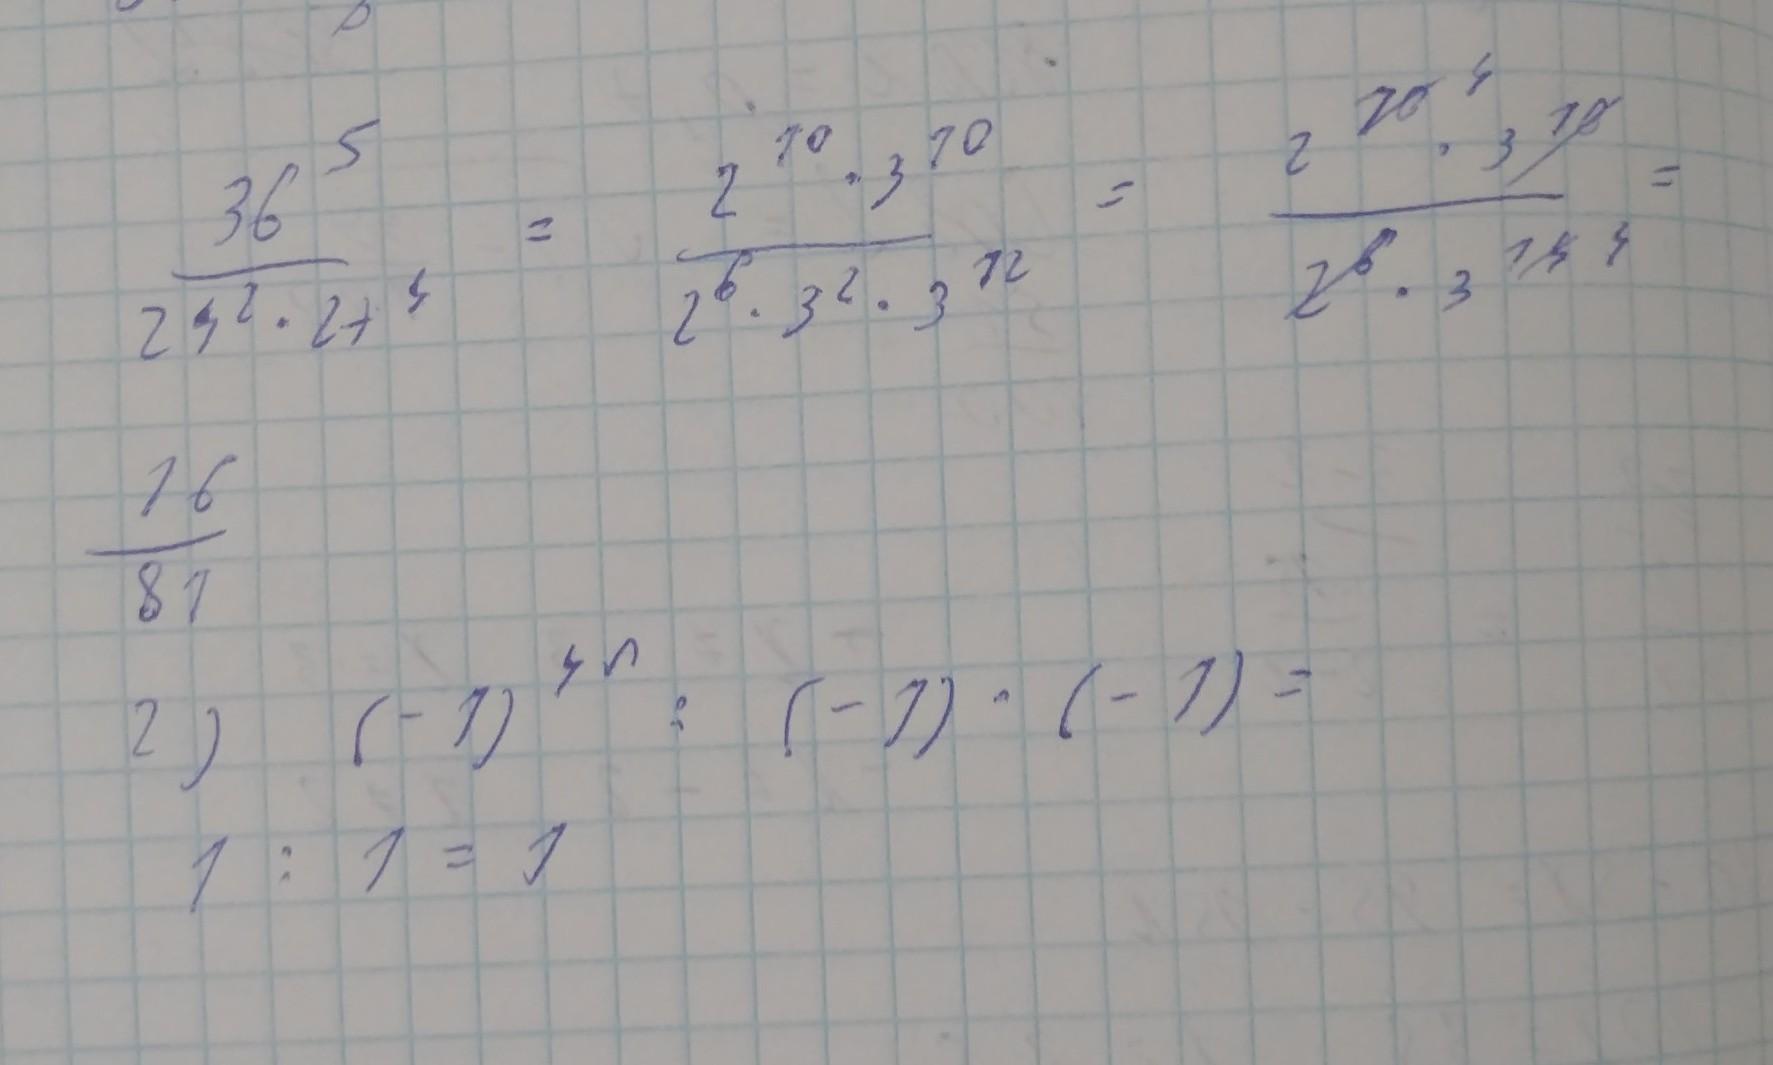 36^5 / (24^2 · 27^4) = (2^10 · 3^10) / (2^6 · 3^2 · 3^12) = (2^10 4 · 3^10) / (2^6 · 3^14 4) =
16/81
2) (-1)^4n : (-1) · (-1) =
1 : 1 = 1